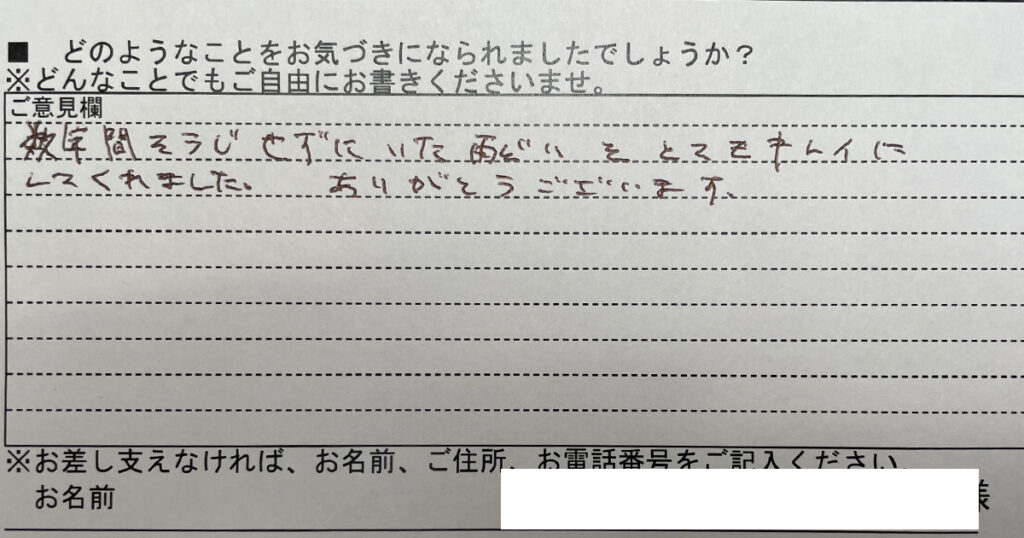 ■　どのようなことをお気づきになられましたでしょうか？
※どんなことでもご自由にお書きくださいませ。
ご意見欄
数年間そうじせずにいた雨どいをとてもキレイに
してくれました。　ありがとうございます。
※お差し支えなければ、お名前、ご住所、お電話番号をご記入ください。
お名前　様